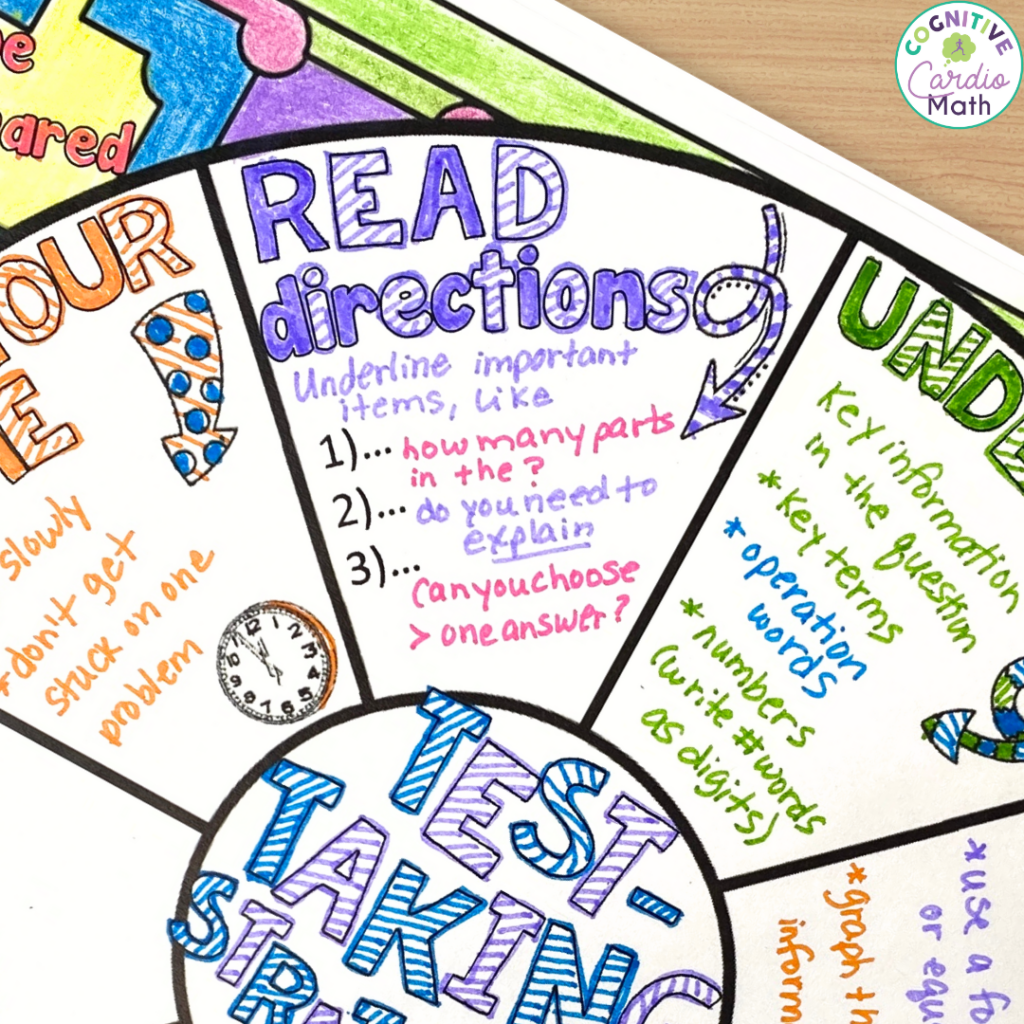 COGNITIVE
Cardio
Math
READ
directions
Underline important
items, like
1)... how many parts
in the?
2)... do you need to
explain
3)...
Can you choose
> one answer?
slowly
*don't get
stuck on one
problem
12
1
2
3
4
5
6
7
8
9
10
11
Key information
in the question
*Key terms
*operation
words
*numbers
(write # words
as digits)
TEST-
TAKING
*graph
*use a
or